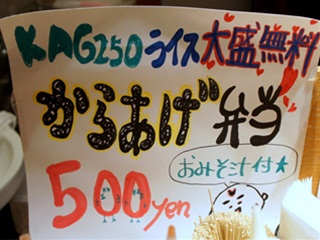 KAG250 ライス大盛無料
からあげ弁当!
おみそ汁付★
500yen